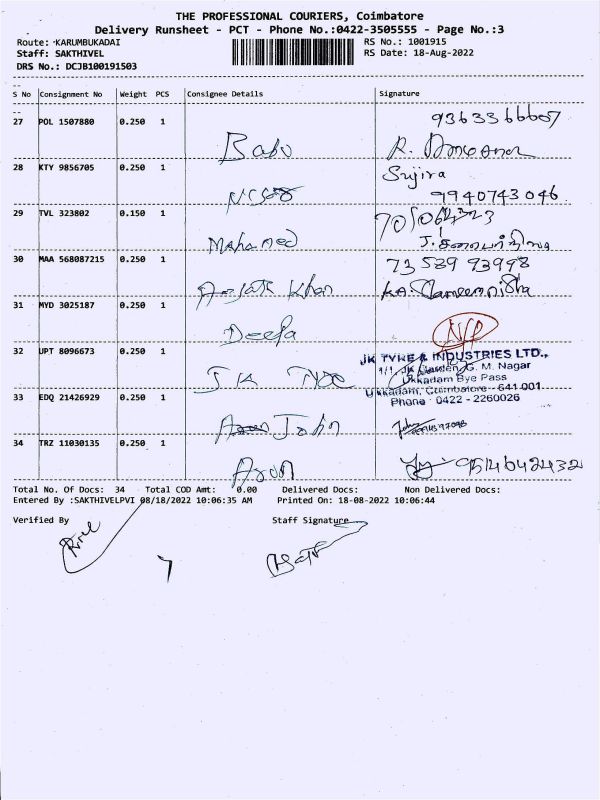 THE PROFESSIONAL COURIERS, Coimbatore
Delivery Runsheet - PCT - Phone No.:0422-3505555 - Page No.:3
Route: KARUMBUKADAI RS No.: 1001915
Staff: SAKTHIVEL RS Date: 18-Aug-2022
DRS No.: DCJB100191503
S No Consignment No Weight PCS Consignee Details Signature
27 POL 1507880 0.250 1 9363366607
Babu R.
28 KTY 9856705 0.250 1 Sujira
9940743046
29 TVL 323802 0.150 1
Mahamed J.
30 MAA 568087215 0.250 1 73589 93998
Khan KA.
31 MYD 3025187 0.250 1
Deepa
32 UPT 8096673 0.250 1 JK TYRE & INDUSTRIES LTD.,
1/1, JK Garden, G. M. Nagar
Ukkadam Bye Pass
JK
33 EDQ 21426929 0.250 1 Ukkadam, Coimbatore - 641 001
Phone : 0422 - 2260026
John
34 TRZ 11030135 0.250 1
Arun 9514642432
Total No. Of Docs: 34 Total COD Amt: 0.00 Delivered Docs: Non Delivered Docs:
Entered By :SAKTHIVELPVI 08/18/2022 10:06:35 AM Printed On: 18-08-2022 10:06:44
Verified By Staff Signature